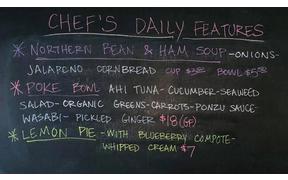 CHEF'S DAILY FEATURES
NORTHERN BEAN & HAM SOUP -ONIONS-
JALAPENO CORNBREAD CUP BOWL
POKE BOWL AHI TUNA-CUCUMBER-SEAWEED
SALAD-ORGANIC GREENS-CARROTS-PONZU SAUCE-
WASABI- PICKLED GINGER $18 (GF)
LEMON PIE -WITH BLUEBERRY COMPOTE-
WHIPPED CREAM $7